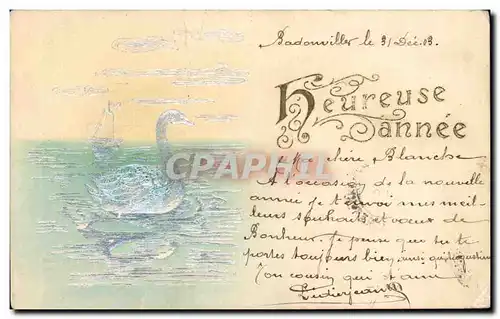 Badonviller le 31 Déc. 03.
Heureuse
année
Ma chère Blanche
A l'occasion de la nouvelle
année je t'envoi mes meil-
leurs souhaits et vœux de
Bonheur. Je pense que tu te
portes toujours bien, ainsi
Ton cousin qui t'aime
CPARHAMA